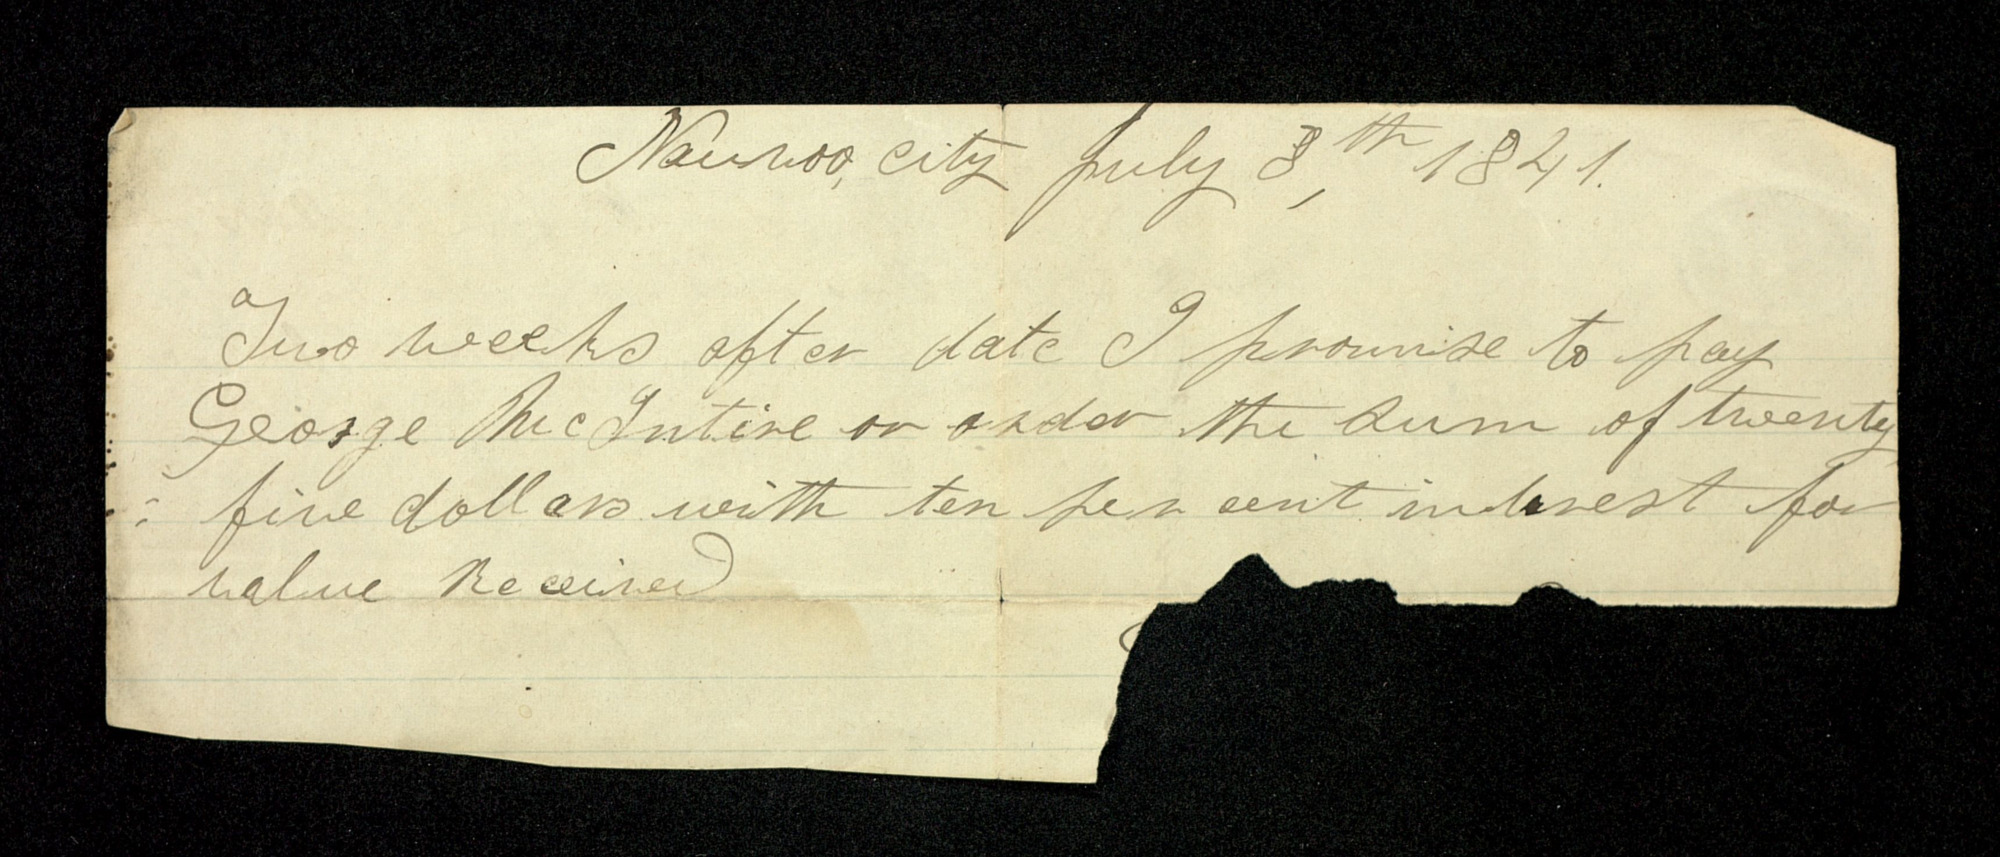 Nauvoo, city July 8,th 1841.
Two weeks after date I promise to pay
George McIntire or order the sum of twenty
five dollars with ten per cent interest for
value Received